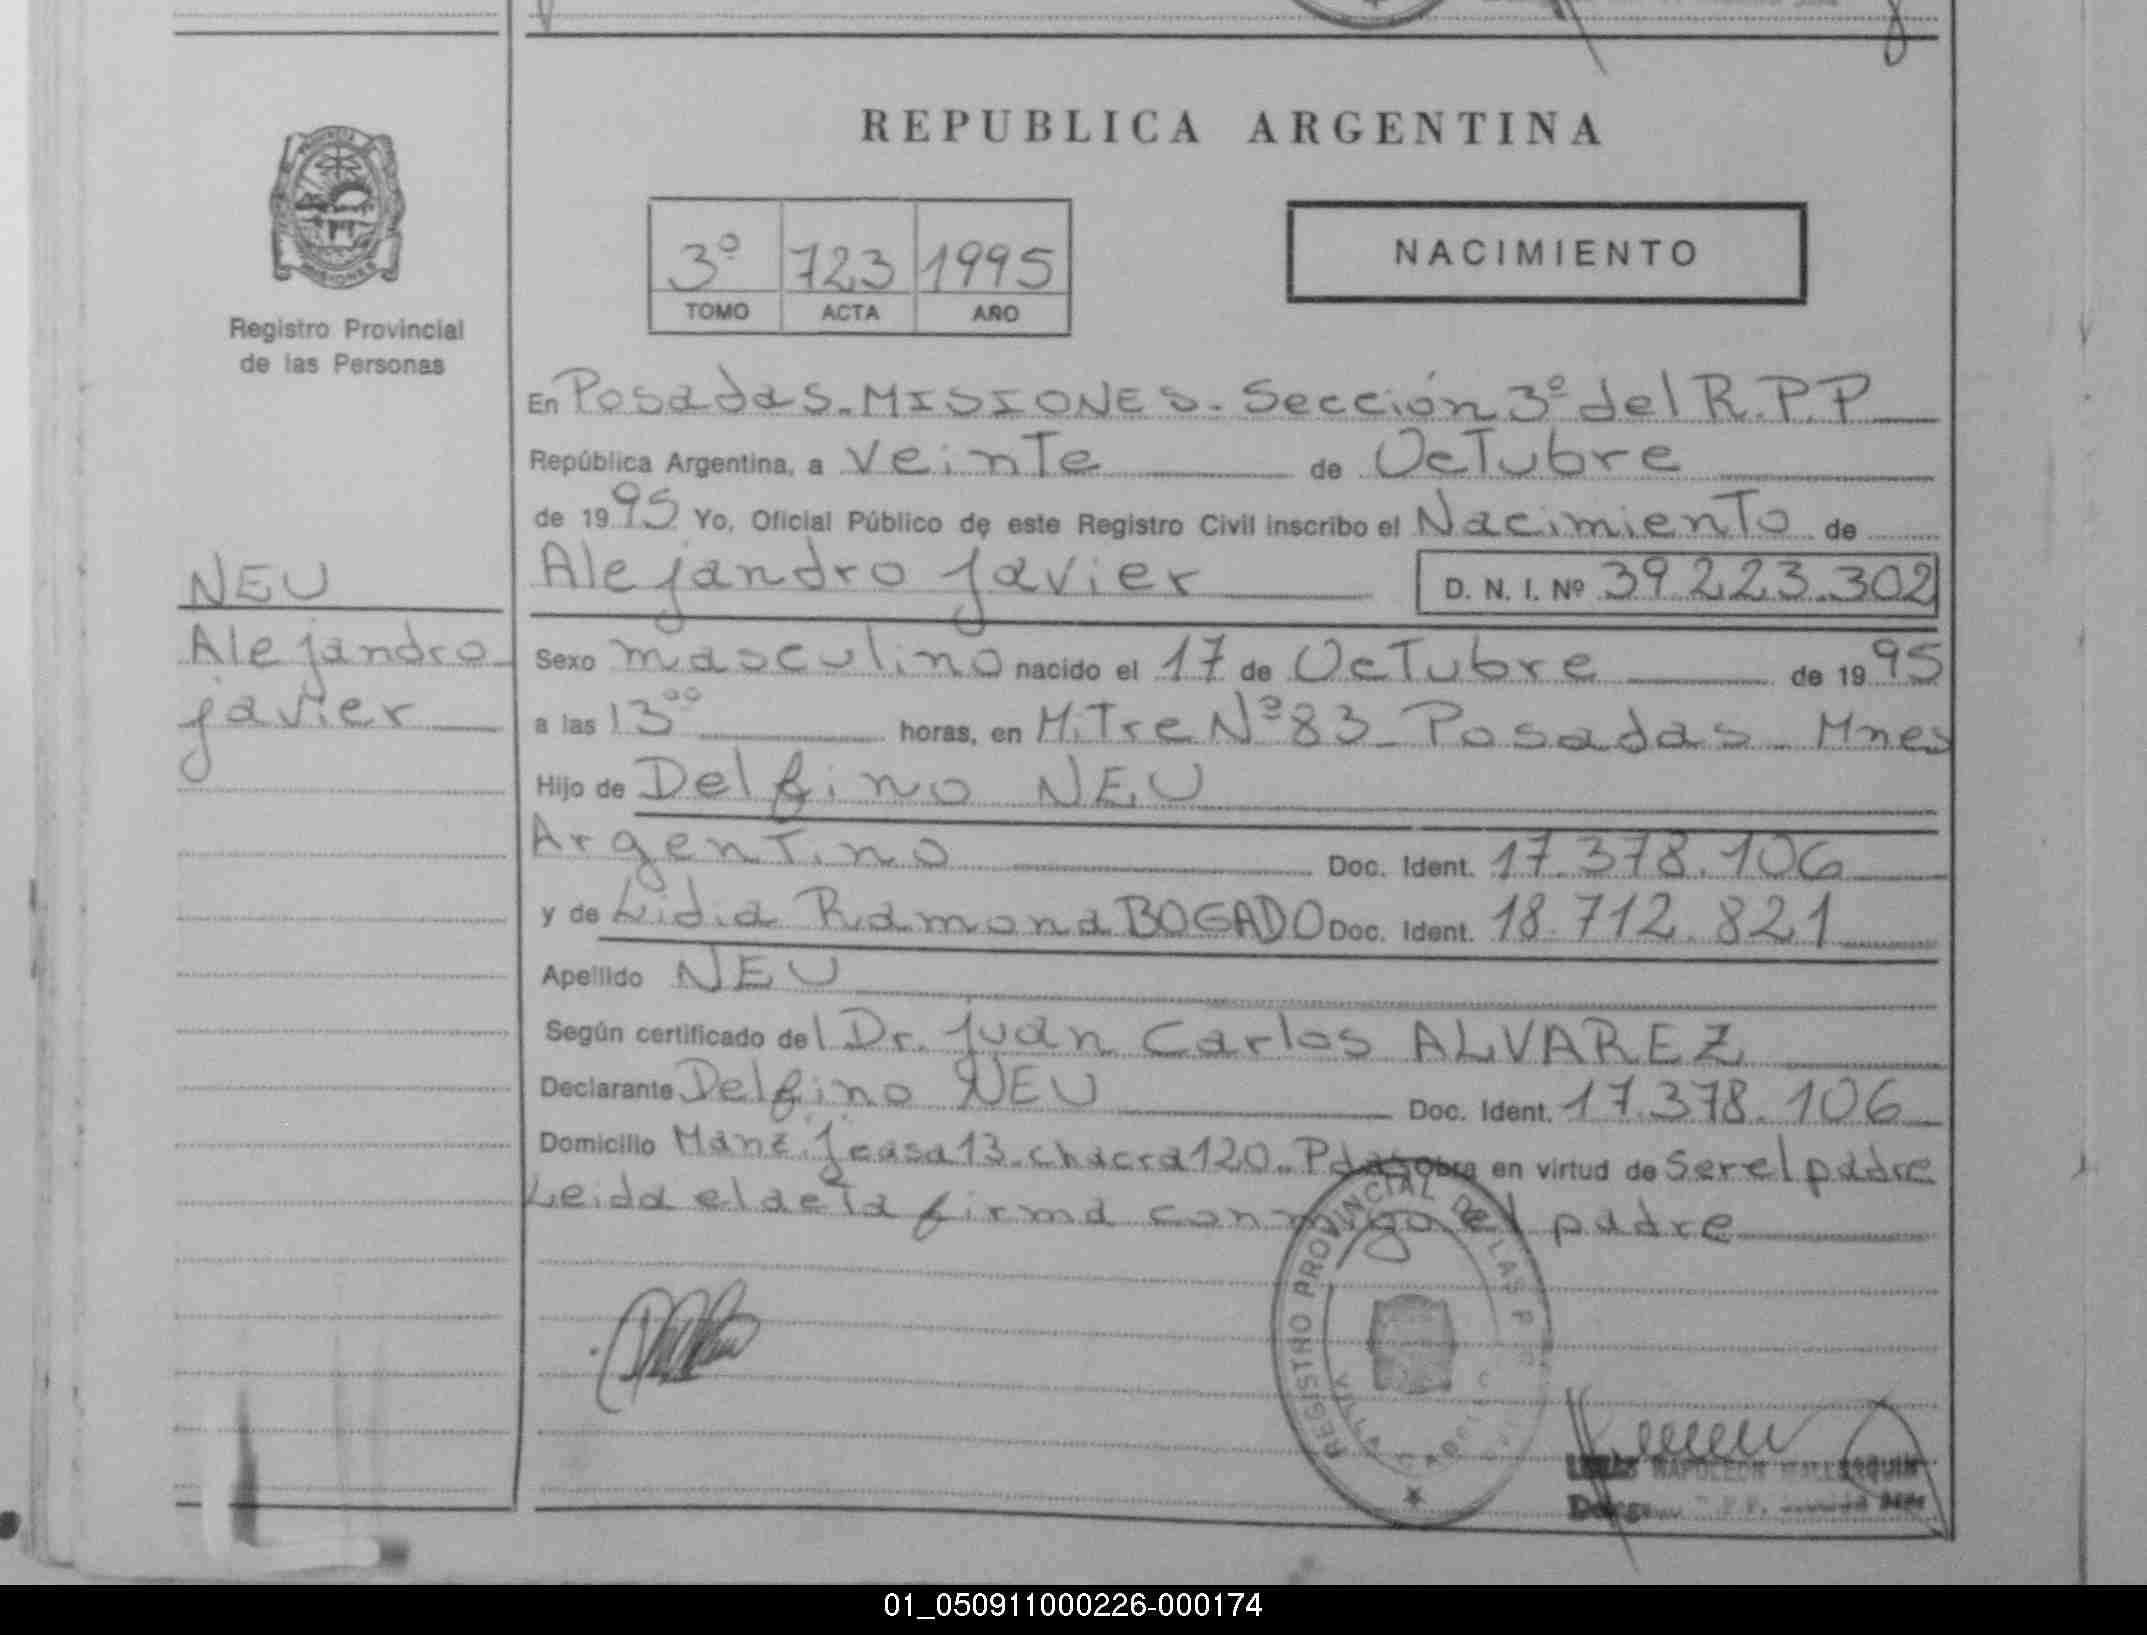 REPUBLICA ARGENTINA
3º 723 1995
TOMO ACTA AÑO
NACIMIENTO
Registro Provincial
de las Personas
NEU
Alejandro
Javier
En Posadas - MISIONES - Sección 3º del R.P.P
República Argentina, a Veinte de Octubre
de 1995 Yo, Oficial Público de este Registro Civil inscribo el Nacimiento de
Alejandro Javier D. N. I. Nº 39.223.302
Sexo masculino nacido el 17 de Octubre de 1995
a las 13⁰⁰ horas, en Mitre Nº 83 - Posadas - Mnes
Hijo de Delfino NEU
Argentino Doc. Ident. 17.378.106
y de Lidia Ramona BOGADO Doc. Ident. 18.712.821
Apellido NEU
Según certificado del Dr. Juan Carlos ALVAREZ
Declarante Delfino NEU Doc. Ident. 17.378.106
Domicilio casa 13 - chacra 120 - en virtud de ser el padre
Leida el acta firma conmigo el padre
REGISTRO PROVINCIAL DE LAS
NAPOLEON
01_050911000226-000174